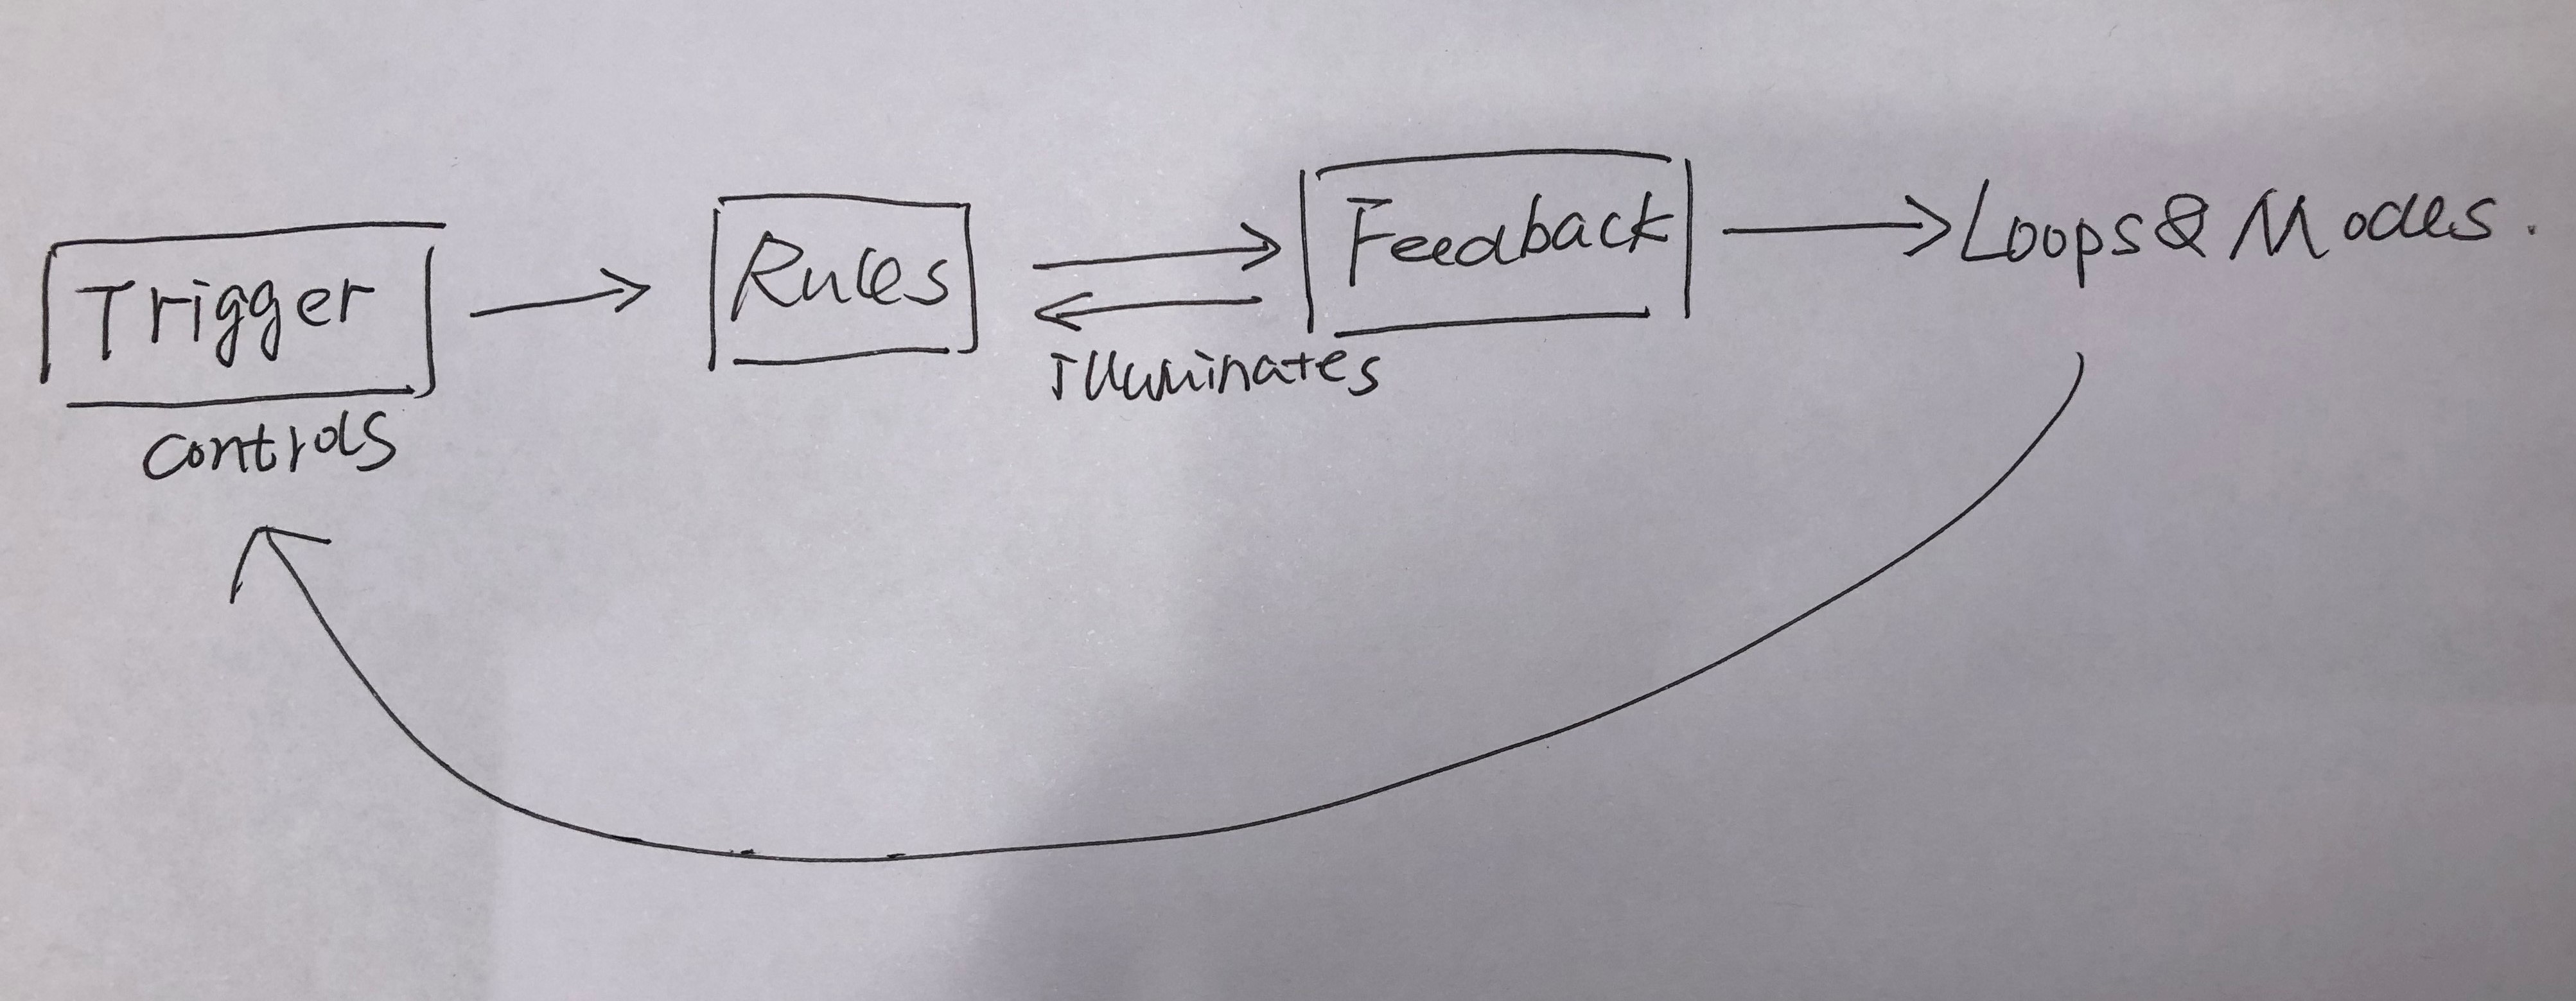 Trigger
controls
Rules
illuminates
Feedback
Loops & Modes.